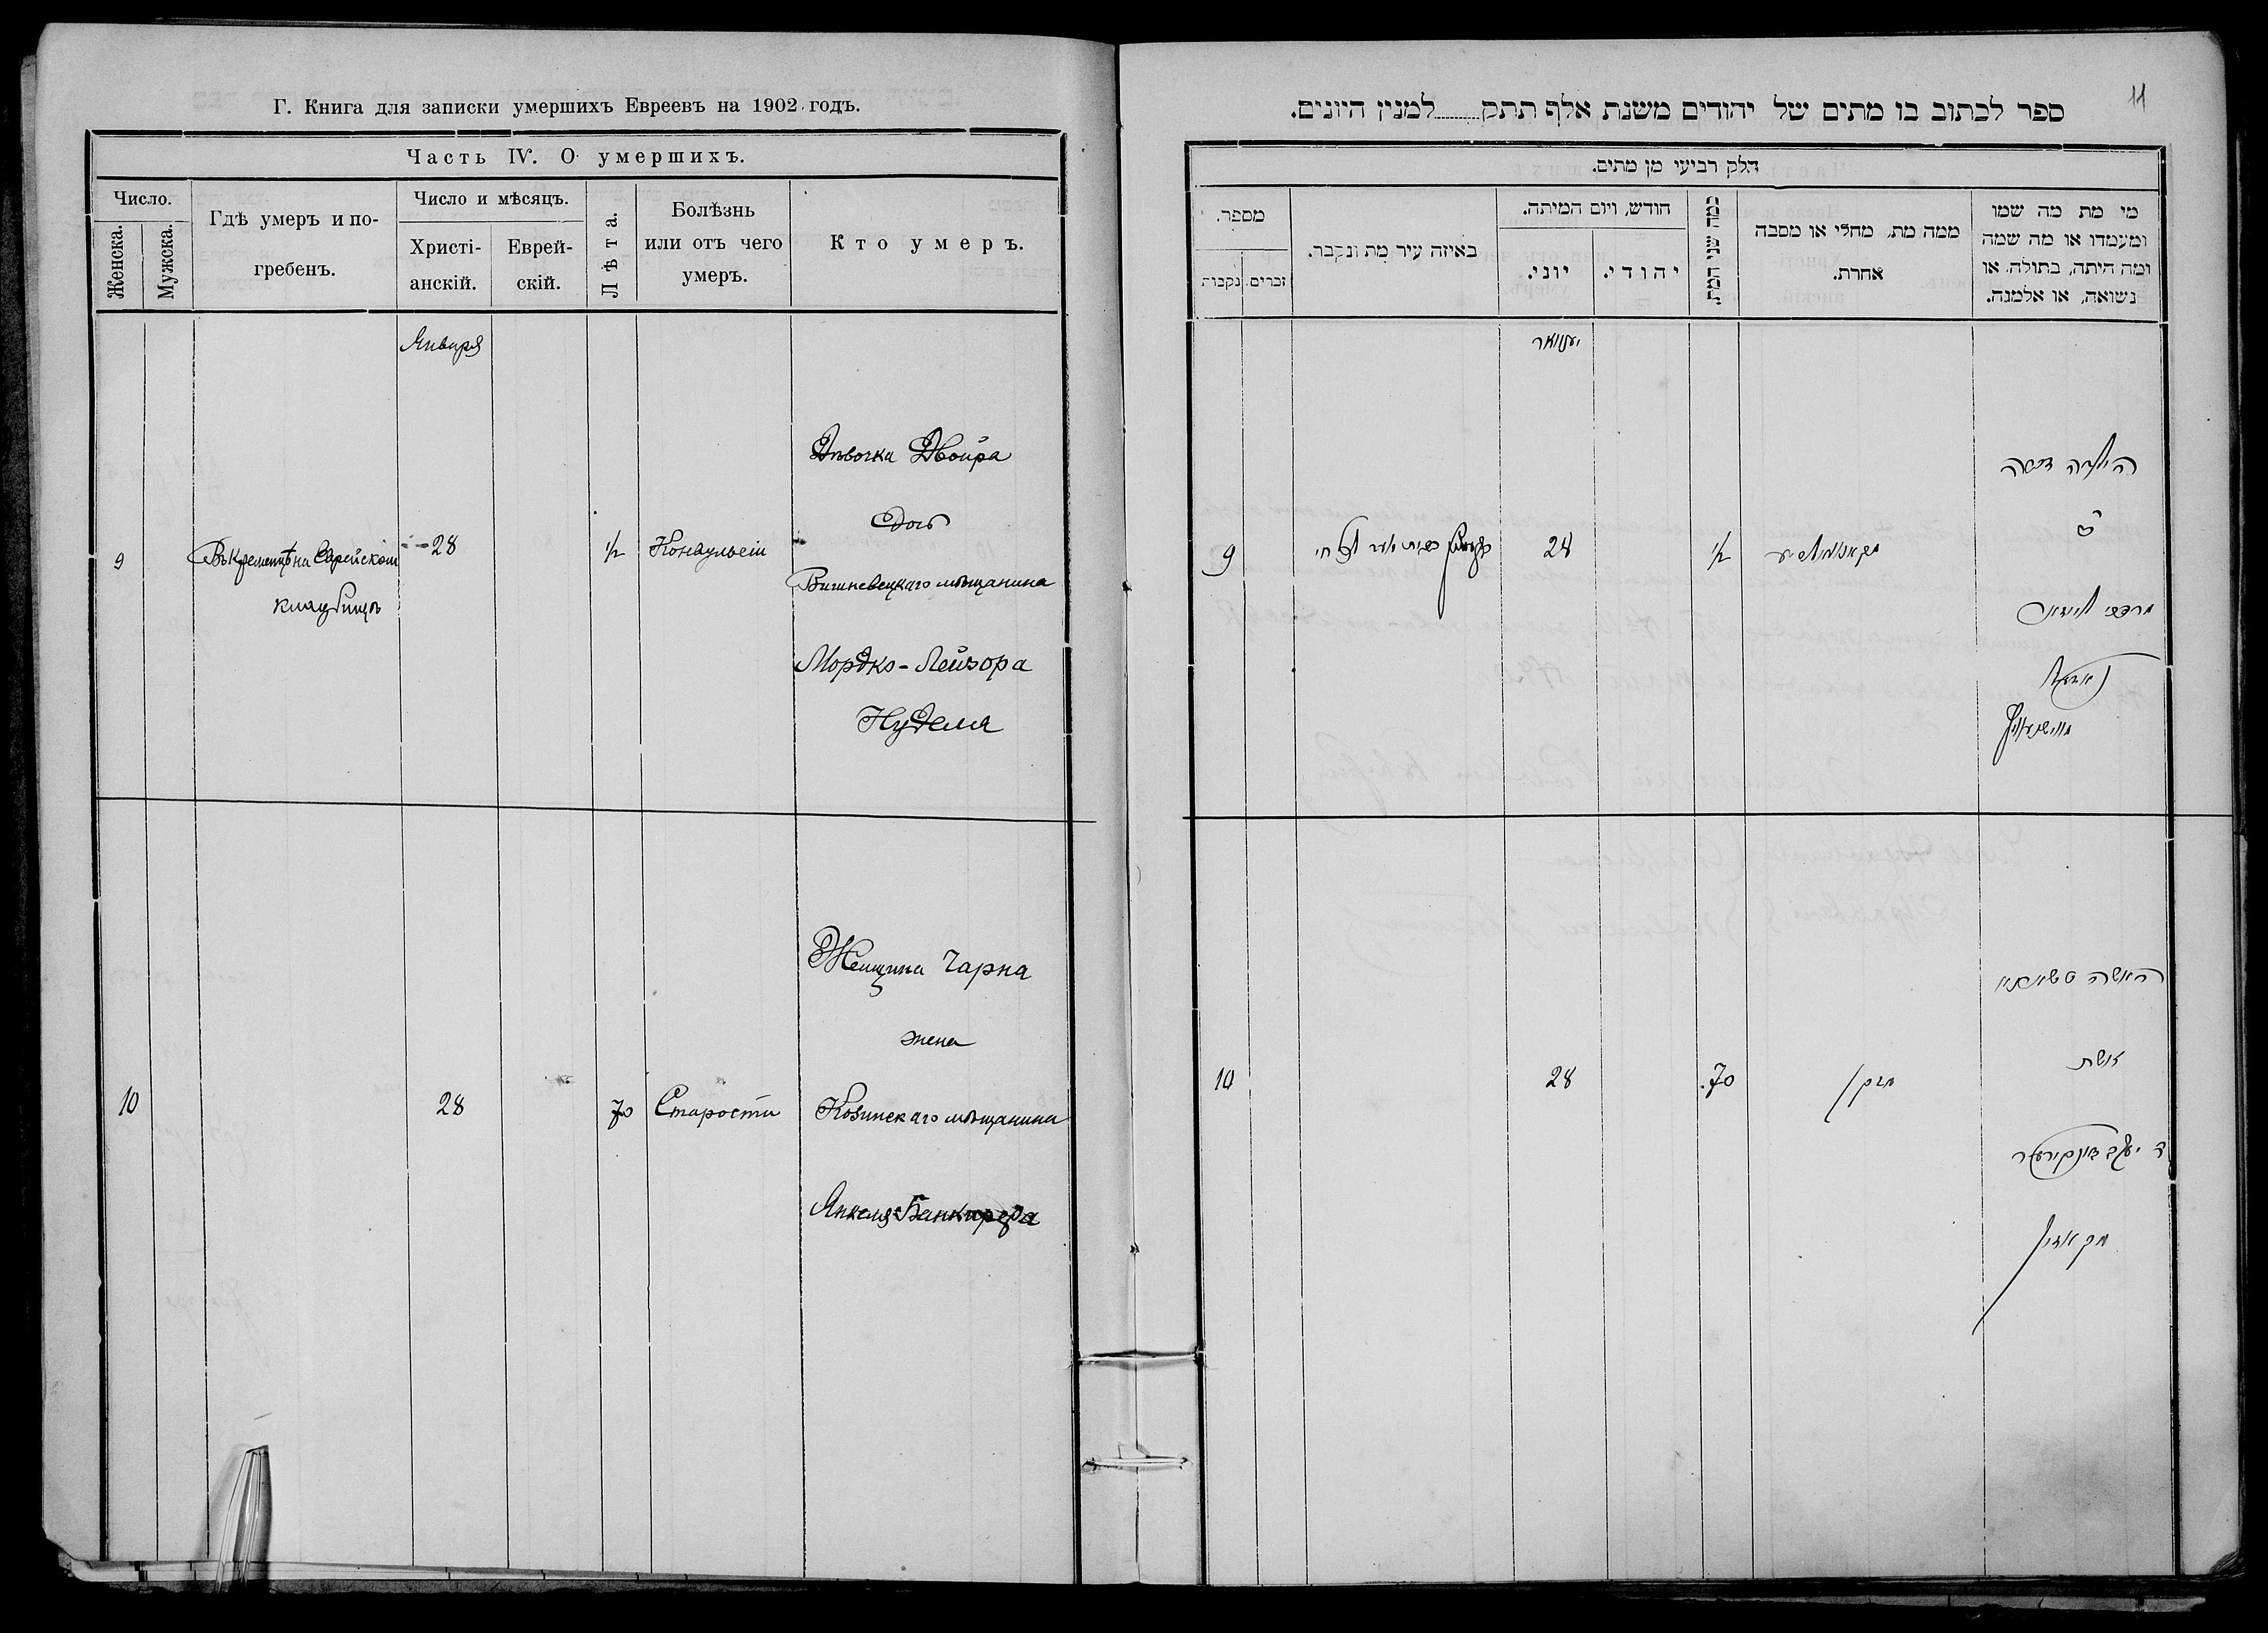 Г. Книга для записки умершихъ Евреевъ на 1902 годъ.
Часть IV. О умершихъ.
Число.
Женска.
Мужска.
Гдѣ умеръ и по-
гребенъ.
Число и мѣсяцъ.
Христі-
анскій.
Еврей-
скій.
Лѣта.
Болѣзнь
или отъ чего
умеръ.
Кто умеръ.
Января
9
Въ Кременцѣ на Еврейском
кладбищѣ
28
1/2
Конвульсіи
Дѣвочка Двойра
дочь
Вишневецкаго мѣщанина
Мордко-Лейзора
Нуделя
10
28
70
Старости
Женщина Чарна
жена
Козинскаго мѣщанина
Янкеля Банкирера
11
ספר לכתוב בו מתים של יהודים משנת אלף תתק למנין היונים.
חלק רביעי מן מתים.
מספר.
נקבות
זכרים.
באיזה עיר מת ונקבר.
חודש, ויום המיתה.
יוני.
יהודי.
כמה שני המת.
ממה מת, מחלי או מסבה
אחרת.
מי מת מה שמו
ומעמדו או מה שמה
ומה היתה, בתולה, או
נשואה, או אלמנה.
יענוואר
9
28
1/2
הילדה
מרדכי
10
28
70
האשה
אשת